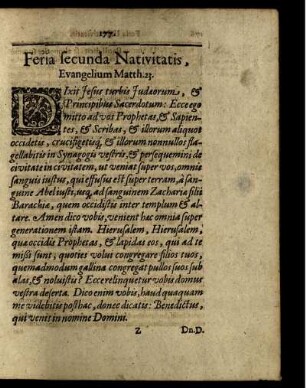 177.
Feria secunda Nativitatis,
Evangelium Matth. 23.
DIxit Jesus turbis Judæorum, &
Principibus Sacerdotum: Ecce ego
mitto ad vos Prophetas, & Sapien-
tes, & Scribas, & illorum aliquot
occidetis, crucifigetisq;, & illorum nonnullos fla-
gellabitis in Synagogis vestris, & persequemini de
civitate in civitatem, ut veniat super vos, omnis
sanguis iustus, qui effusus est super terram, a san-
guine Abel iusti, usq; ad sanguinem Zachariæ filii
Barachiæ, quem occidistis inter templum & al-
tare. Amen dico vobis, venient hæc omnia super
generationem istam. Hierusalem, Hierusalem,
quæ occidis Prophetas, & lapidas eos, qui ad te
missi sunt, quoties volui congregare filios tuos,
quemadmodum gallina congregat pullos suos sub
alas, & noluistis? Ecce relinquetur vobis domus
vestra deserta. Dico enim vobis, haud quaquam
me videbitis posthac, donec dicatis: Benedictus,
qui venit in nomine Domini.
Z Dn.D.